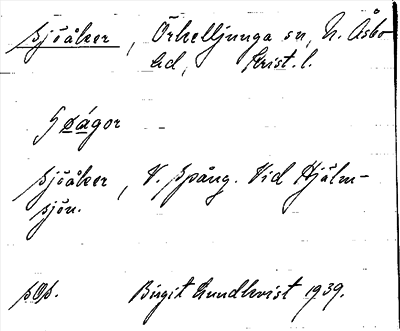 Sjöåker, Örkelljunga sn, N. Åsbo
hd, Krist. l.
Sjöåker, V. Spång. Vid Hjälm-
sjön.
pop. Birgit Lundkvist 1939.